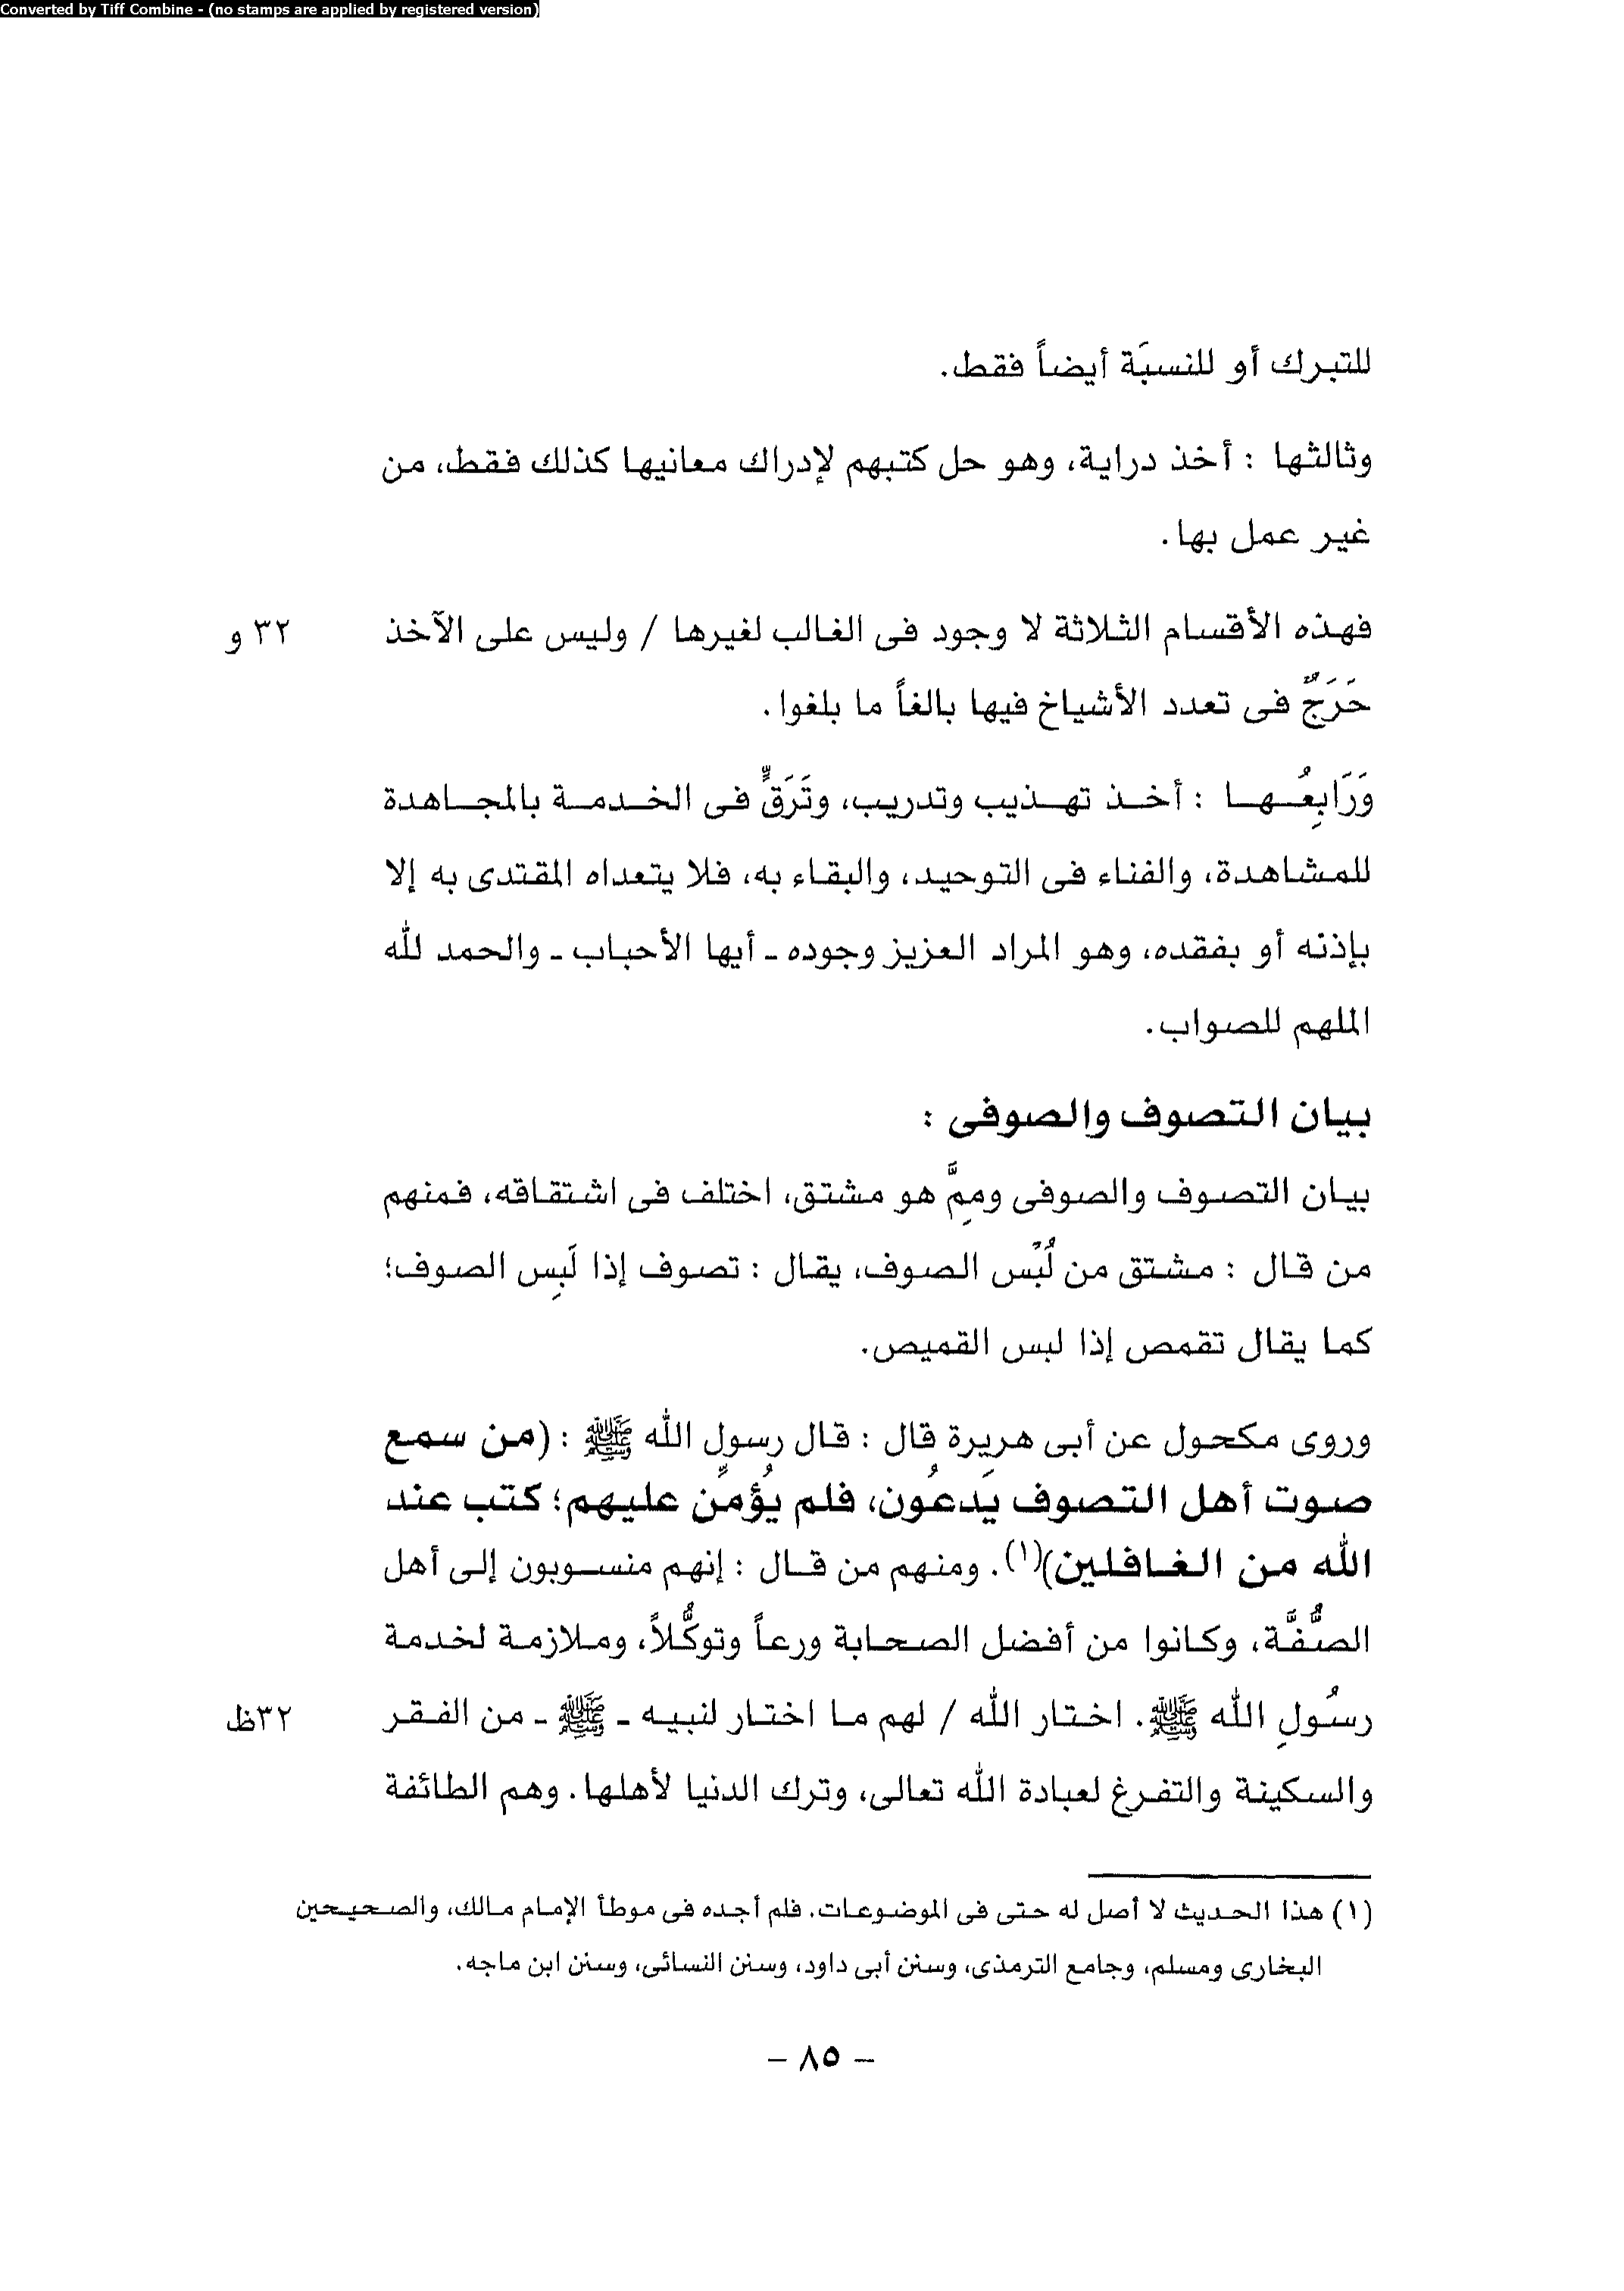 Converted by Tiff Combine - (no stamps are applied by registered version)
للتبرك أو للنسبَة أيضاً فقط.
وثالثها : أخذ دراية، وهو حل كتبهم لإدراك معانيها كذلك فقط، من
غير عمل بها.
فهذه الأقسام الثلاثة لا وجود فى الغالب لغيرها / وليس على الآخذ
٣٢ و
حَرَجٌ فى تعدد الأشياخ فيها بالغاً ما بلغوا.
وَرَابِعُها : أخذ تهذيب وتدريب، وتَرَقٍّ فى الخدمة بالمجاهدة
للمشاهدة، والفناء فى التوحيد، والبقاء به، فلا يتعداه المقتدى به إلا
بإذنه أو بفقده، وهو المراد العزيز وجوده - أيها الأحباب - والحمد لله
الملهم للصواب.
بيان التصوف والصوفى :
بيان التصوف والصوفى ومِمَّ هو مشتق، اختلف فى اشتقاقه، فمنهم
من قال : مشتق من لُبْس الصوف، يقال : تصوف إذا لَبِس الصوف؛
كما يقال تقمص إذا لبس القميص.
وروى مكحول عن أبى هريرة قال : قال رسول الله ﷺ : (من سمع
صوت أهل التصوف يَدعُون، فلم يُؤمنْ عليهم؛ كتب عند
الله من الغافلين)(١). ومنهم من قال : إنهم منسوبون إلى أهل
الصُّفَّة، وكانوا من أفضل الصحابة ورعاً وتوكُّلاً، وملازمة لخدمة
رسُولِ الله ﷺ. اختار الله / لهم ما اختار لنبيه - ﷺ - من الفقر
٣٢ظ
والسكينة والتفرغ لعبادة الله تعالى، وترك الدنيا لأهلها. وهم الطائفة
(١) هذا الحديث لا أصل له حتى فى الموضوعات. فلم أجده فى موطأ الإمام مالك، والصحيحين
البخارى ومسلم، وجامع الترمذى، وسنن أبى داود، وسنن النسائى، وسنن ابن ماجه.
- ٨٥ -